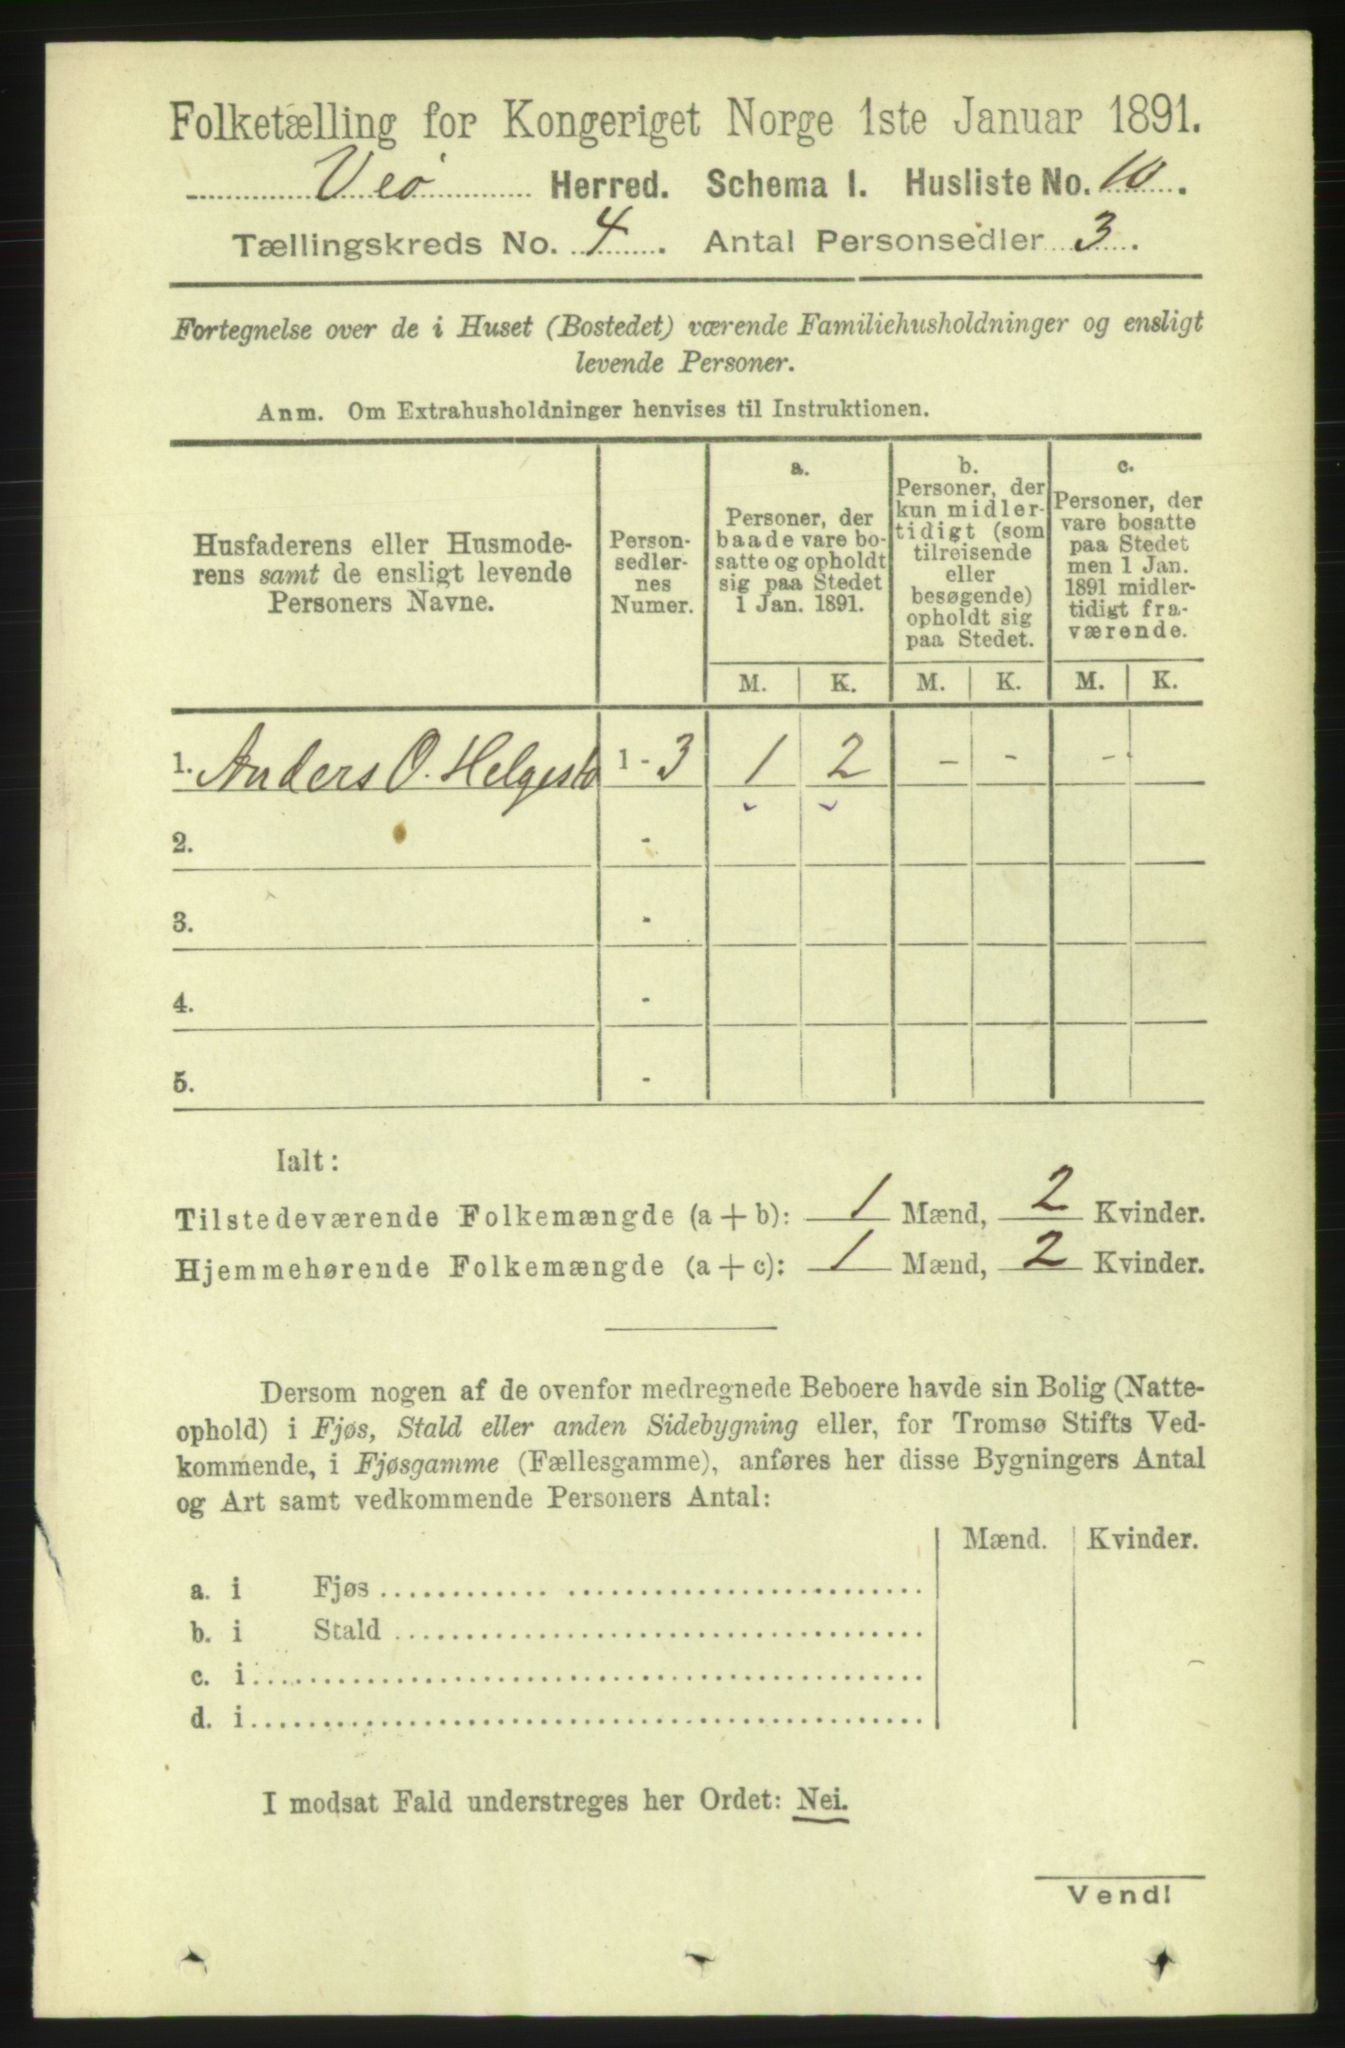 Folketælling for Kongeriget Norge 1ste Januar 1891.
Veø Herred. Schema I. Husliste No. 10.
Tællingskreds No. 4. Antal Personsedler 3.
Fortegnelse over de i Huset (Bostedet) værende Familiehusholdninger og ensligt
levende Personer.
Anm. Om Extrahusholdninger henvises til Instruktionen.
Husfaderens eller Husmode-
rens samt de ensligt levende
Personers Navne.
Person-
sedler-
nes
Numer.
a.
Personer, der
baade vare bo-
satte og opholdt
sig paa Stedet
1 Jan. 1891.
b.
Personer, der
kun midler-
tidigt (som
tilreisende
eller
besøgende)
opholdt sig
paa Stedet.
c.
Personer, der
vare bosatte
paa Stedet
men 1 Jan.
1891 midler-
tidigt fra-
værende.
M. K. M. K. M. K.
1. Anders O. Helgesta 1 - 3 1 2 - - -
2. -
3. -
4. -
5. -
Ialt:
Tilstedeværende Folkemængde (a + b): 1 Mænd, 2 Kvinder.
Hjemmehørende Folkemængde (a + c): 1 Mænd, 2 Kvinder.
Dersom nogen af de ovenfor medregnede Beboere havde sin Bolig (Natte-
ophold) i Fjøs, Stald eller anden Sidebygning eller, for Tromsø Stifts Ved-
kommende, i Fjøsgamme (Fællesgamme), anføres her disse Bygningers Antal
og Art samt vedkommende Personers Antal:
Mænd. Kvinder.
a. i Fjøs
b. i Stald
c. i
d. i
I modsat Fald understreges her Ordet: Nei.
Vend!